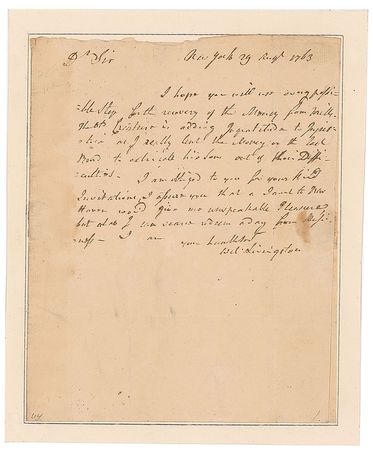 Dr Sir New York 29 Augt 1763
I hope you will use every possi-
-ble Step for the recovery of the Money from
is adding Ingratitude to Injus-
-tice as I really lent the Money on the
Bond to extricate his Son out of their Diffi-
-culties. I am obliged to you for your kind
Invitation, I assure you that a Jaunt to New
Haven would give me unspeakable Pleasure
but alas I can scarce redeem a day from Busi-
-ness — I am your humble Servt
Wil: Livingston